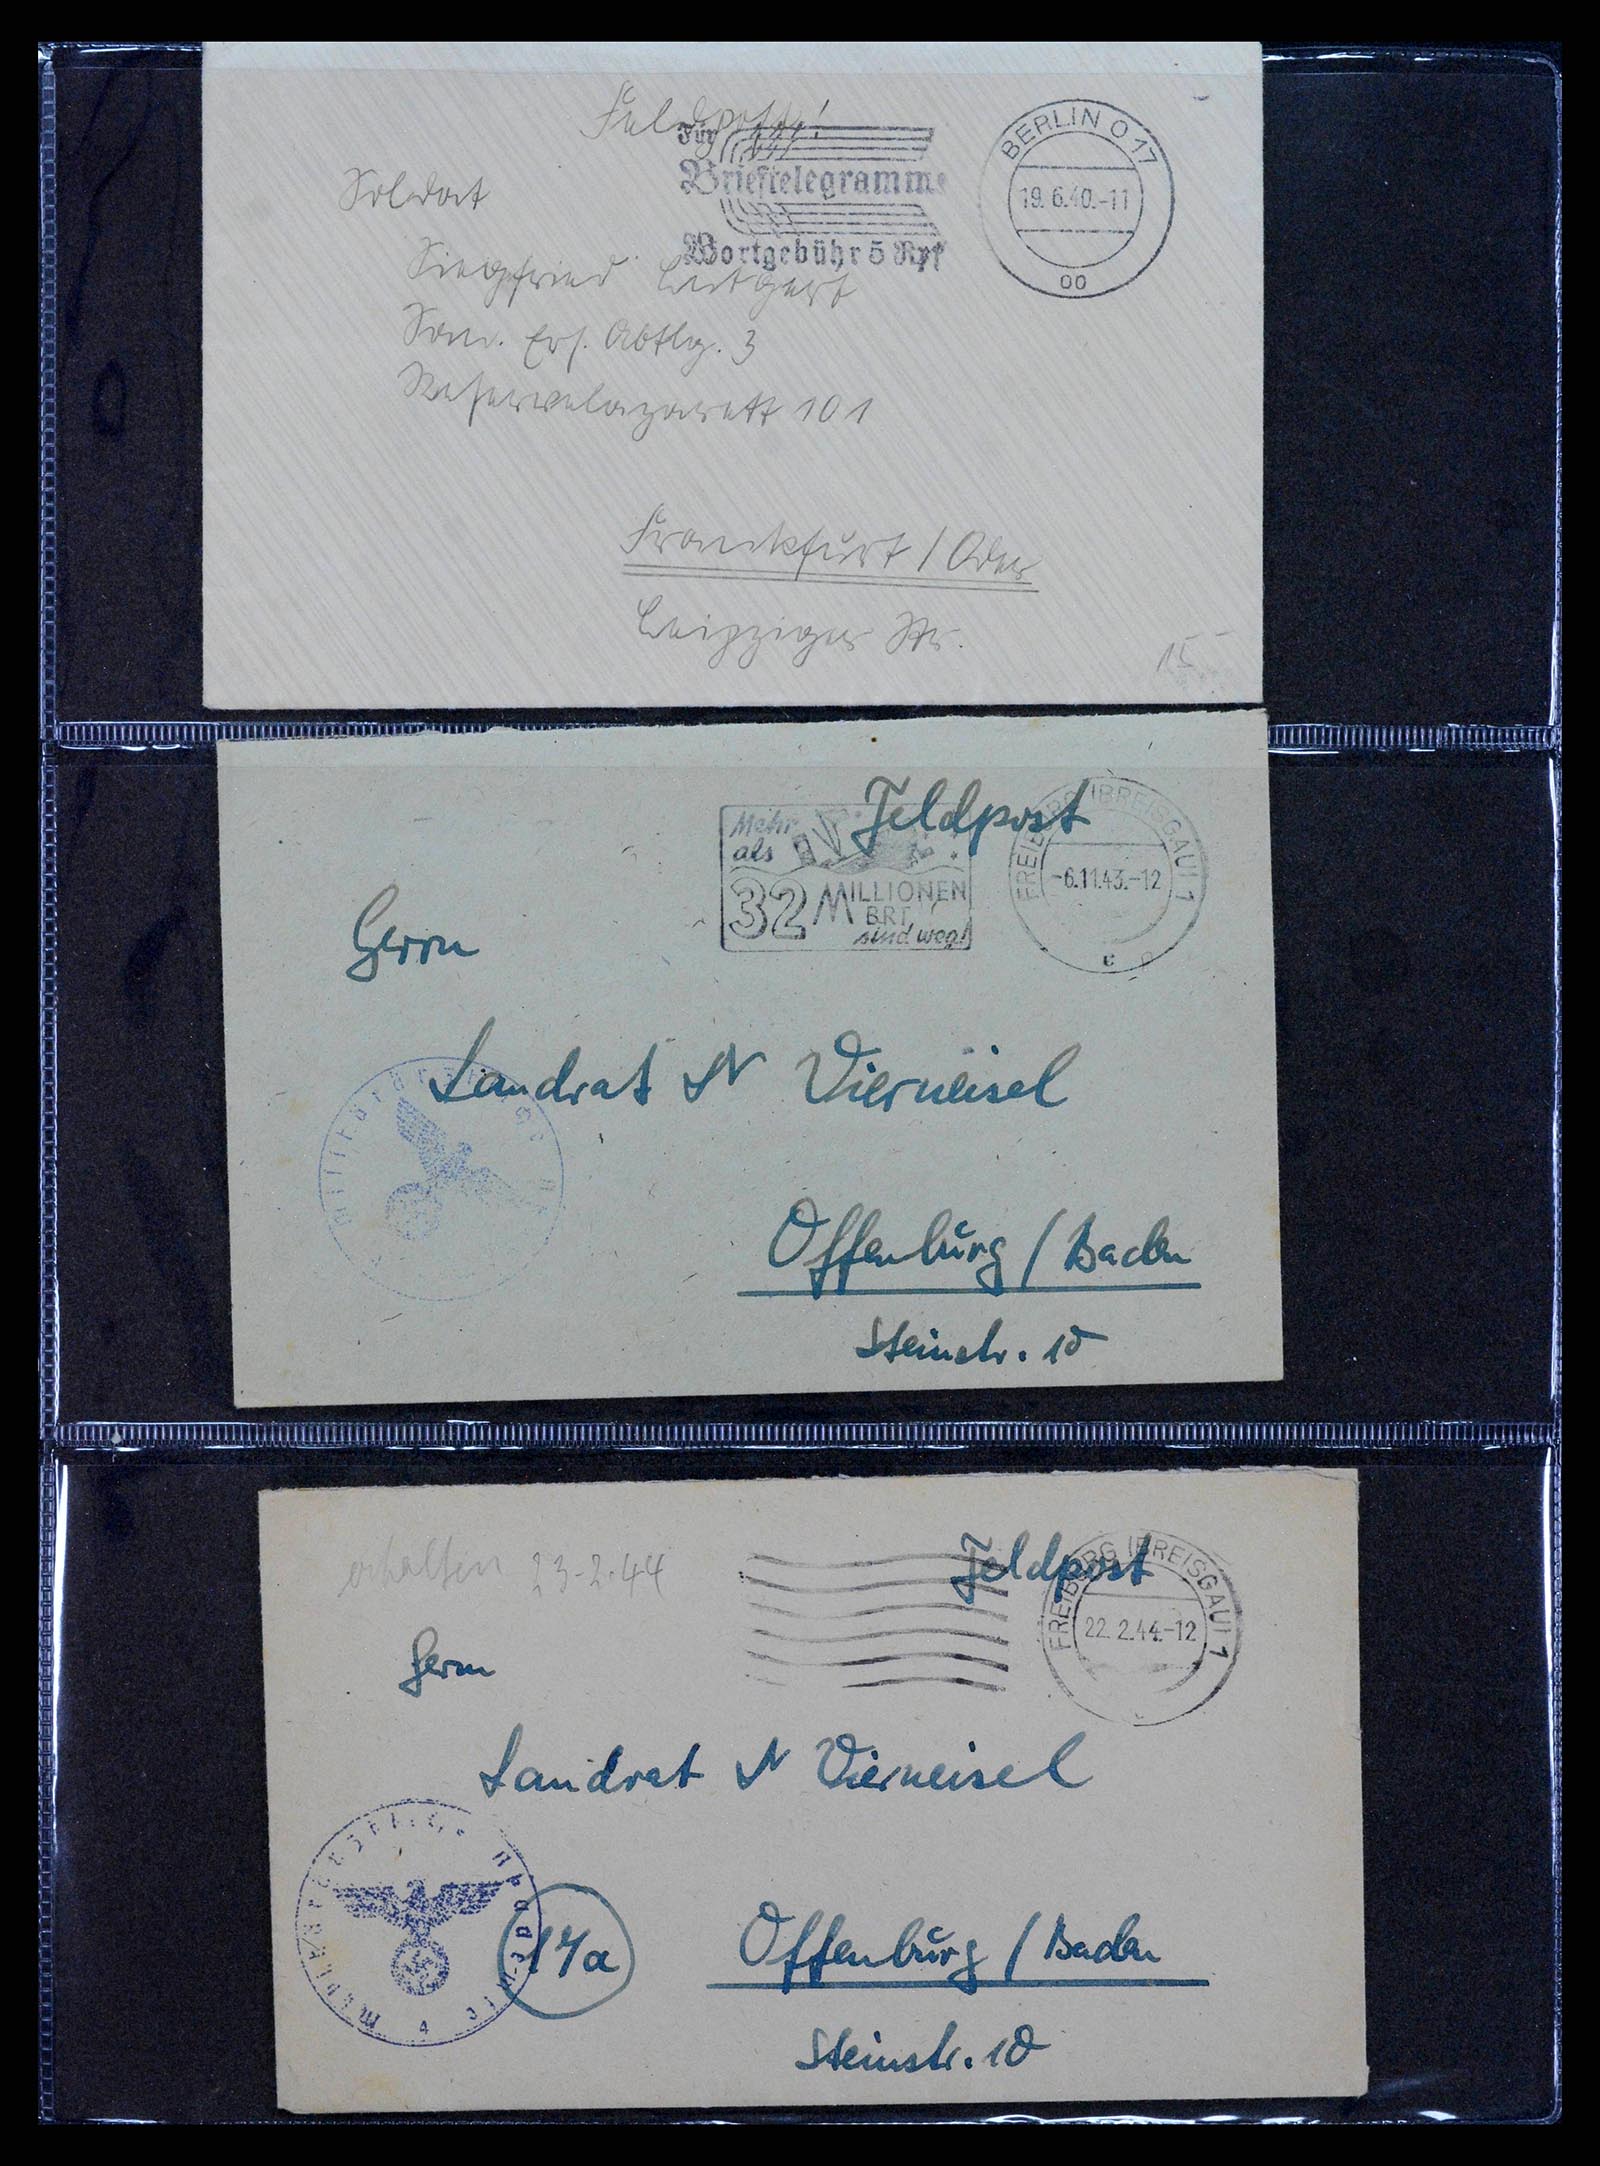 Feldpost!
Für
Brieftelegramme
Wortgebühr 5 Rpf
BERLIN O 17
19.6.40.-11
oo
Soldat
Siegfried
San. Ers. Abtlg. 3
Reservelazarett 101
Frankfurt / Oder
Leipziger Str.
15
Feldpost
Mehr
als
32 MILLIONEN
B.R.T.
sind weg!
FREIBURG (BREISGAU) 1
-6.11.43.-12
c
Herrn
Landrat Dr Vierneisel
Offenburg / Baden
Steinstr. 10
erhalten 23-2.44
Feldpost
FREIBURG (BREISGAU) 1
22.2.44.-12
Herrn
Landrat Dr Vierneisel
17a
Offenburg / Baden
4
Steinstr. 10